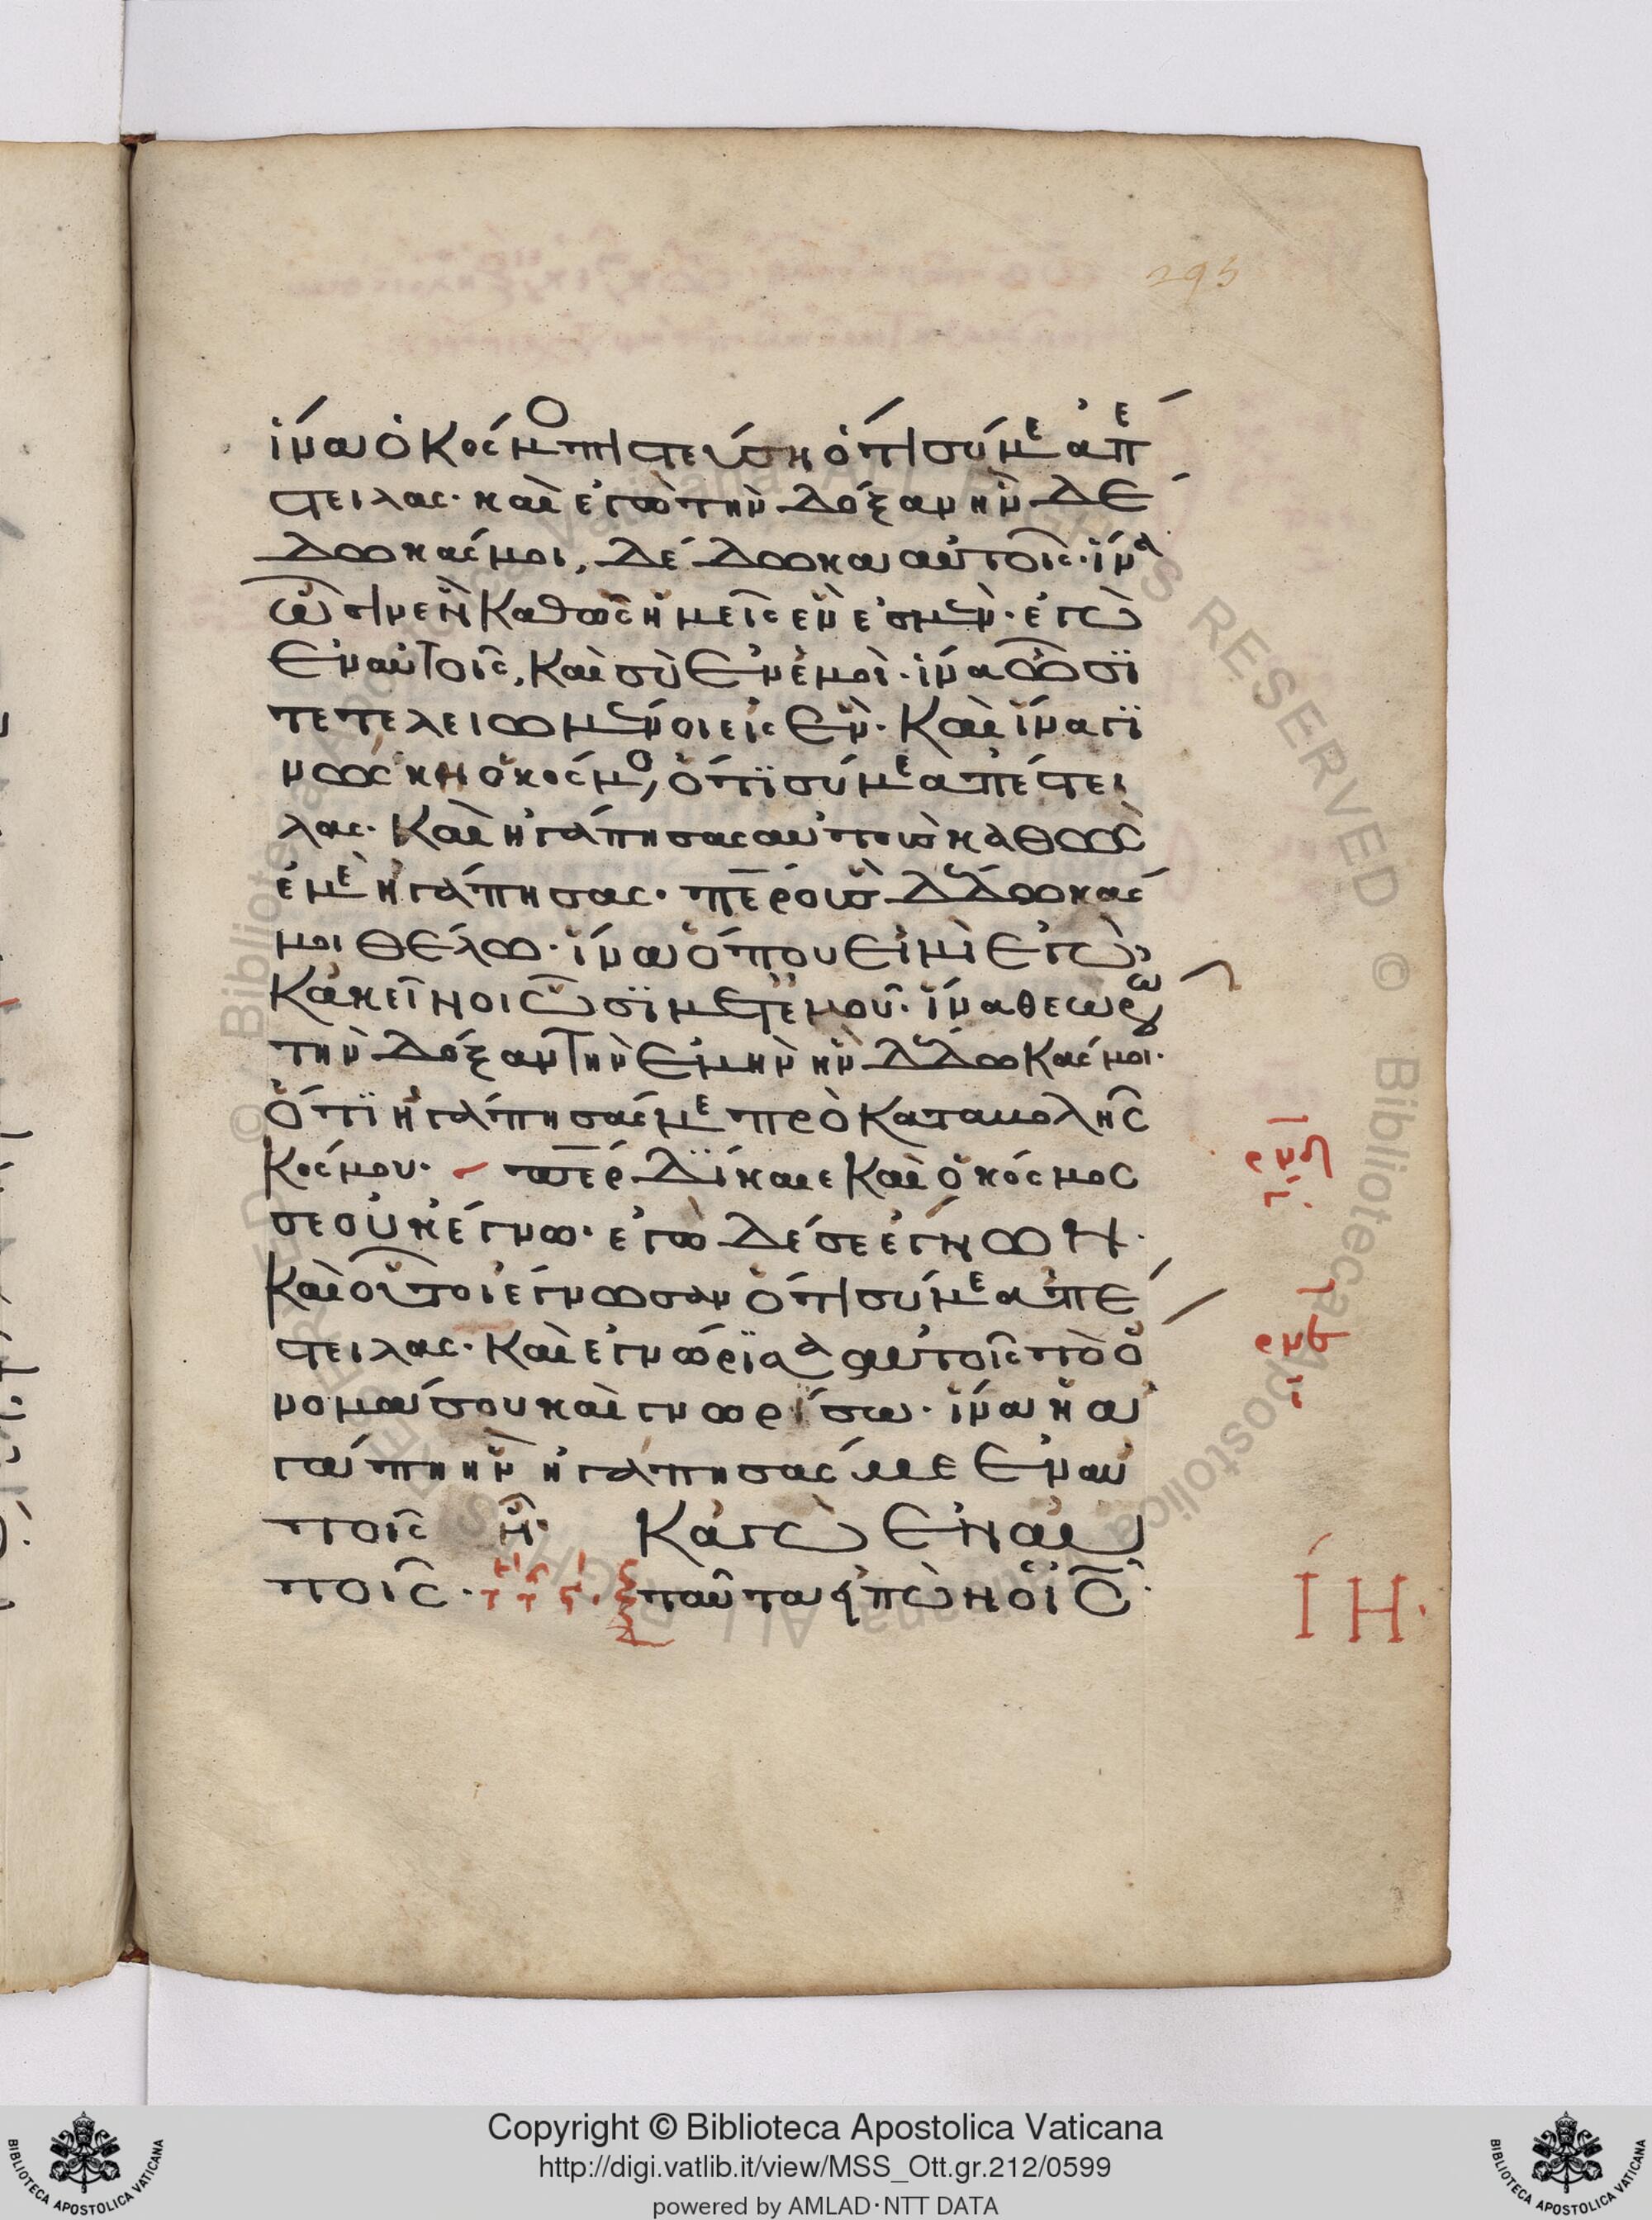 295
ἵνα ὁ κόσμο πιστεύση ὅτι σύ με ἀπέ
στειλας· καὶ ἐγὼ τὴν δόξαν ἣν δέ
δωκάς μοι, δέδωκα αὐτοῖς· ἵνα
ὦσιν ἓν καθὼς ἡμεῖς ἕν ἐσμεν· ἐγὼ
ἐν αὐτοῖς, καὶ σὺ ἐν ἐμοὶ· ἵνα ὦσϊ
τετελειωμένοι εἰς ἕν· καὶ ἵνα γϊ
νώσκη ὁ κόσμο, ὅτϊ σύ με ἀπέστει
λας· καὶ ἠγάπησας αὐτοὺς καθὼς
ἐμὲ ἠγάπησας· περ οὓς δέδωκάς
μοι θέλω· ἵνα ὅπου εἰμὶ ἐγὼ,
κἀκεῖνοι ὦσϊ μετ' ἐμοῦ· ἵνα θεωρῶ
τὴν δόξαν τὴν ἐμὴν ἣν δέδωκάς μοι·
ὅτϊ ἠγάπησάς με πρὸ καταβολῆς
κόσμου· περ δίκαιε καὶ ὁ κόσμος
σε οὐκ ἔγνω· ἐγὼ δέ σε ἔγνων·
καὶ οὗτοι ἔγνωσαν ὅτι σύ με ἀπέ
στειλας· καὶ ἐγνώρϊσα αὐτοῖς τὸ ὄ
νομά σου καὶ γνωρίσω· ἵνα ἡ ἀ
γάπη ἣν ἠγάπησάς με ἐν αὐ
τοῖς ᾖ· κἀγὼ ἐν αὐ
τοῖς· ταῦτα εἰπὼν ὁ ις·
ΙΗ·
Copyright © Biblioteca Apostolica Vaticana
http://digi.vatlib.it/view/MSS_Ott.gr.212/0599
powered by AMLAD·NTT DATA
BIBLIOTECA APOSTOLICA VATICANA
BIBLIOTECA APOSTOLICA VATICANA